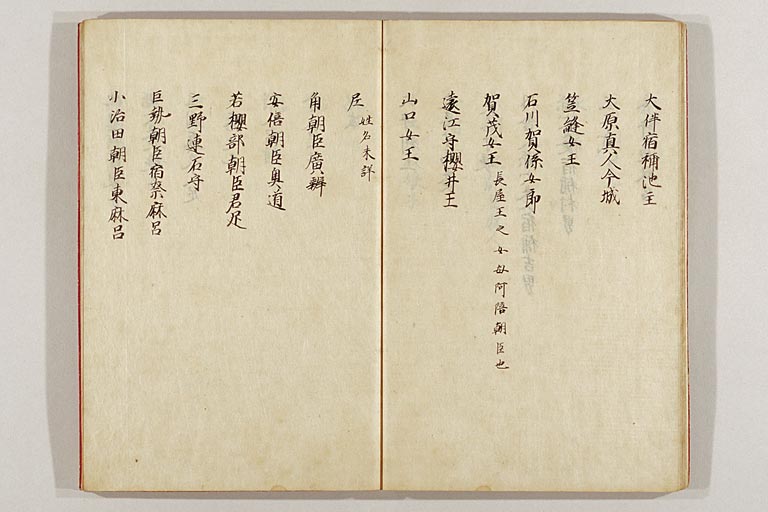 大伴宿祢池主
大原真人今城
笠縫女王
石川賀係女郎
賀茂女王 長屋王之女母阿陪朝臣也
遠江守櫻井王
山口女王
尼 姓名未詳
角朝臣廣辨
安倍朝臣奥道
若櫻部朝臣君足
三野連石守
巨勢朝臣宿奈麻呂
小治田朝臣東麻呂